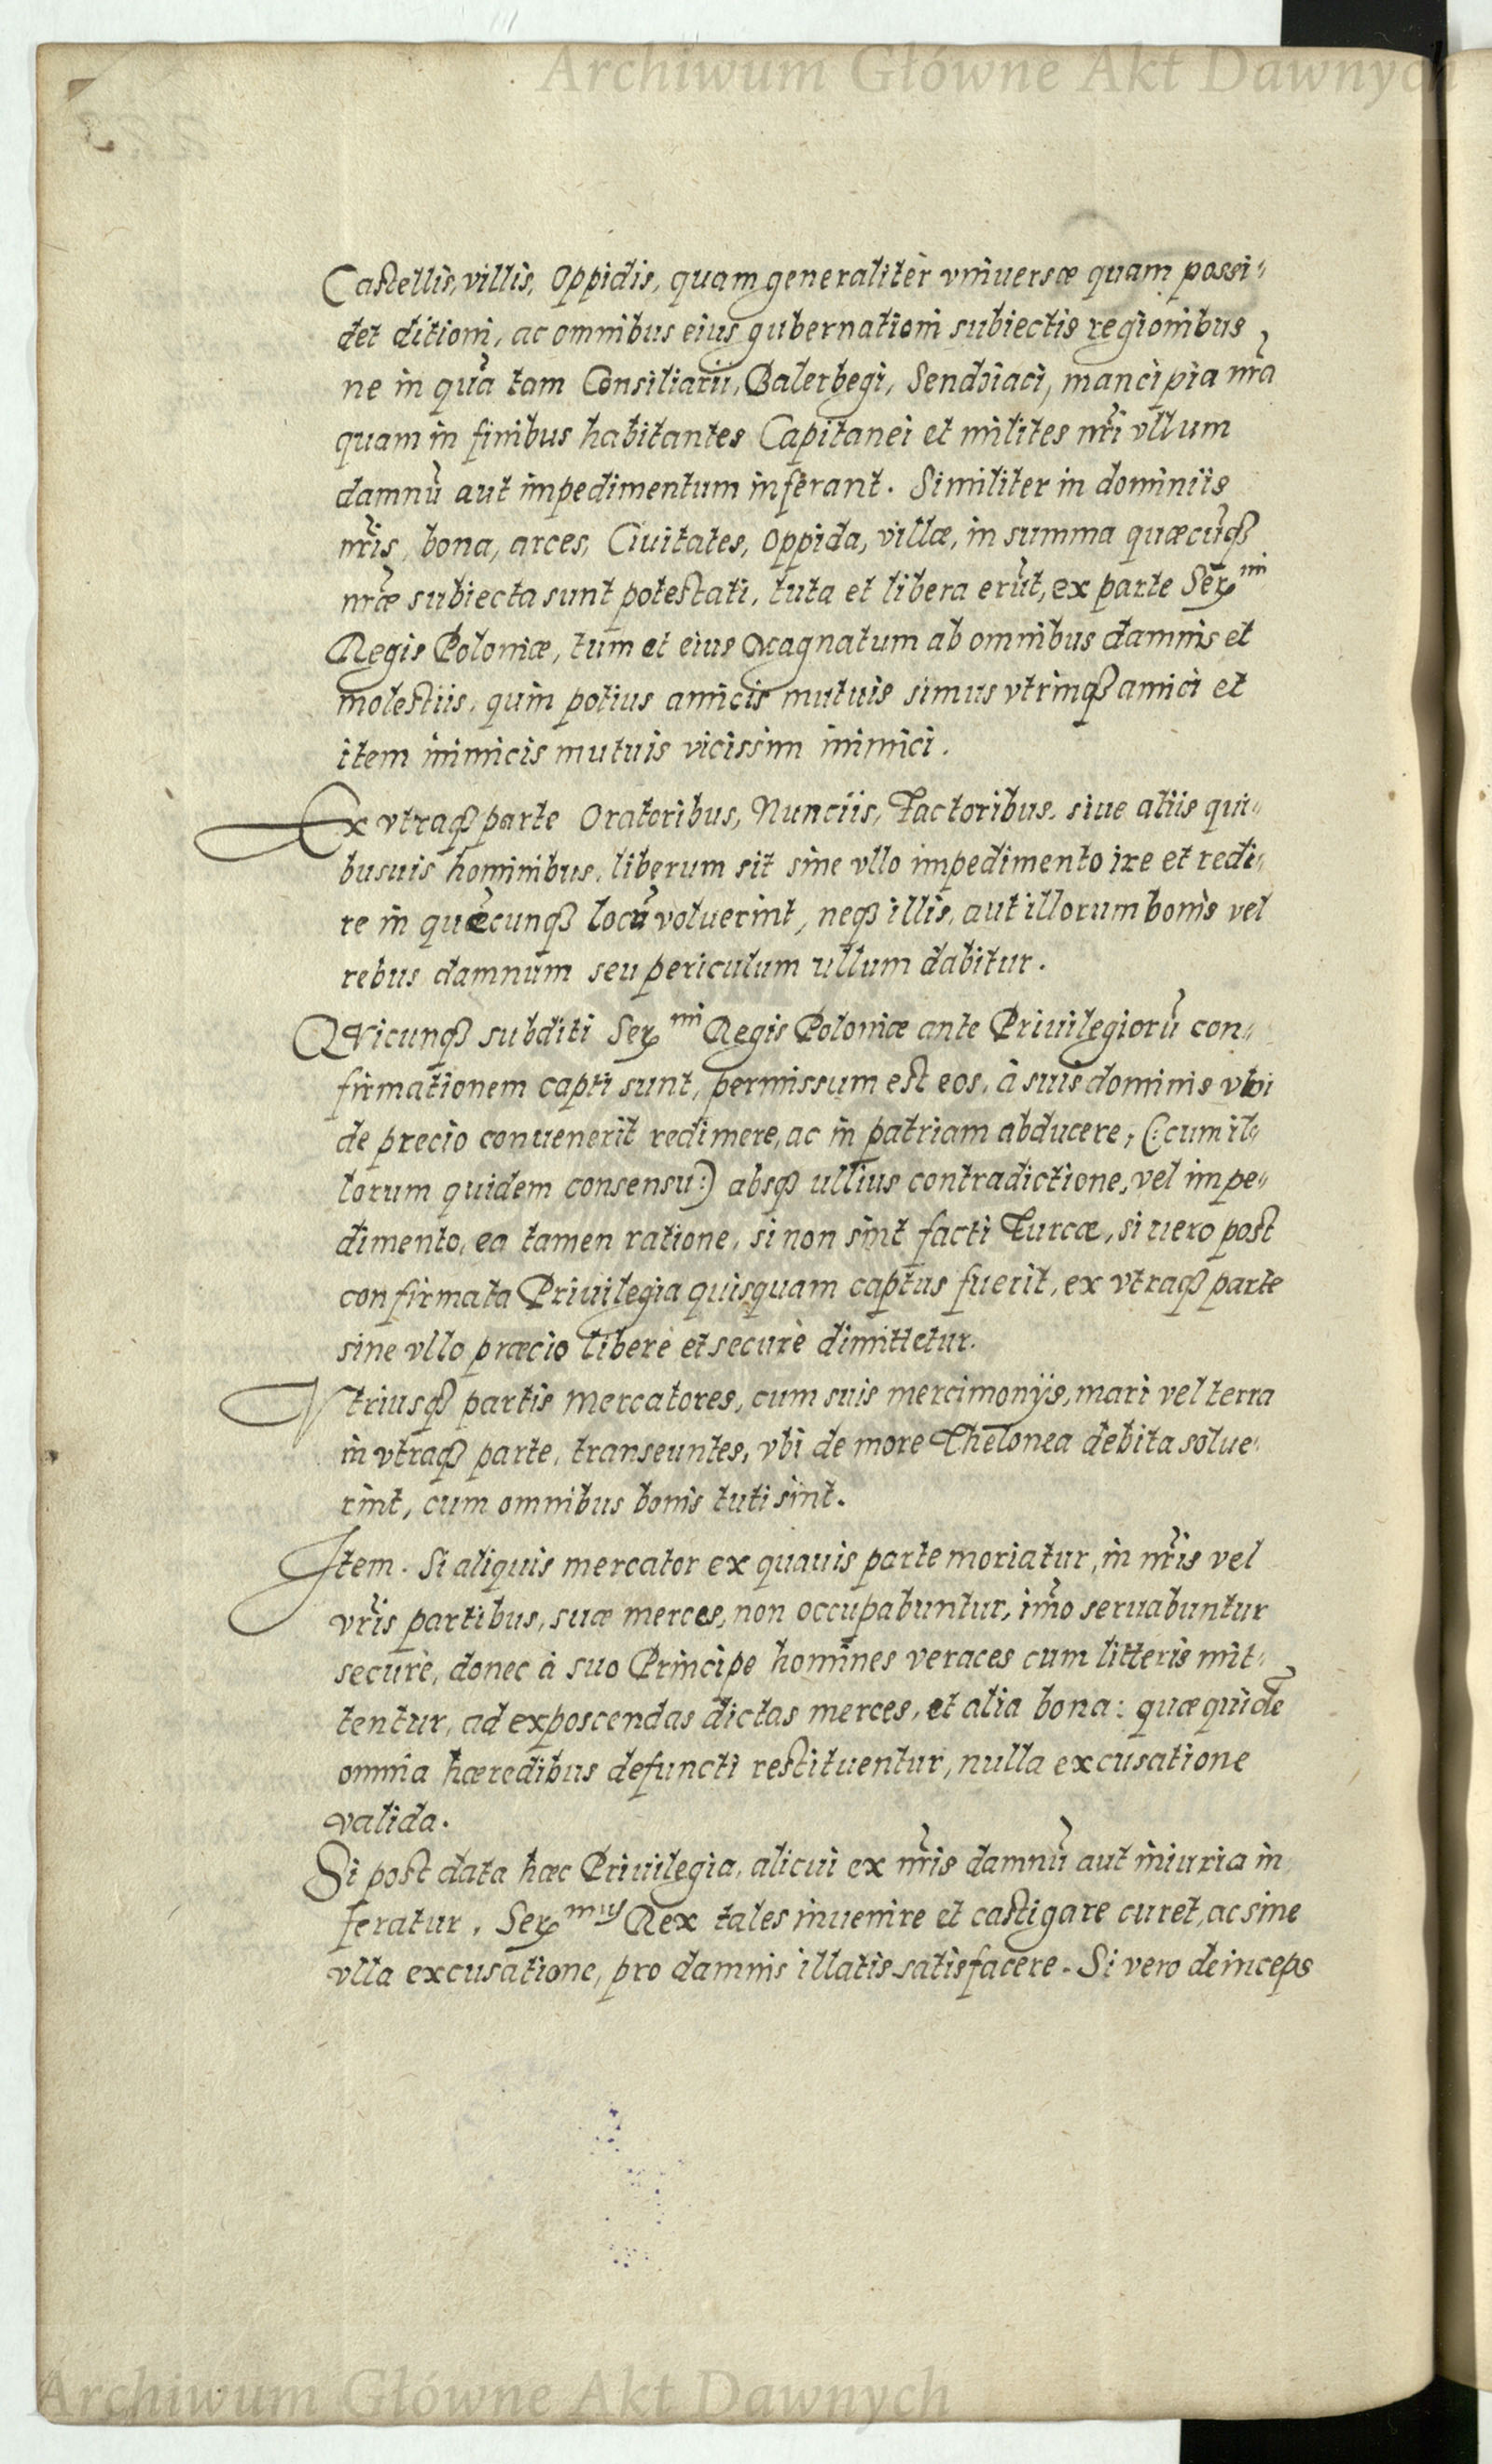 Archiwum Główne Akt Dawnych
Castellis, villis, Oppidis, quam generaliter vniuersæ quam possi-
det ditioni, ac omnibus eius gubernationi subiectis regionibus
ne in quã tam Consiliarii, Balerbegi, Sendziaci, mancipia nr̃a
quam in finibus habitantes Capitanei et milites nr̃i vllum
damnũ aut impedimentum inferant. Similiter in dominiis
nr̃is, bona, arces, Ciuitates, Oppida, villæ, in summa quæcũqȝ
nr̃æ subiecta sunt potestati, tuta et libera erũt, ex parte Serᵐⁱ
Regis Poloniæ, tum et eius Magnatum ab omnibus damnis et
molestiis, quin potius amicis mutuis simus vtrinqȝ amici et
item inimicis mutuis vicissim inimici.
Ex vtraqȝ parte Oratoribus, Nunciis, Factoribus, siue aliis qui-
busuis hominibus, liberum sit sine vllo impedimento ire et redi-
re in quẽcunqȝ locũ voluerint, neqȝ illis, aut illorum bonis vel
rebus damnum seu periculum ullum dabitur.
QVicunqȝ subditi Serᵐⁱ Regis Poloniæ ante Priuilegiorũ con-
firmationem capti sunt, permissum est eos, à suis dominis vbi
de precio conuenerit redimere, ac in patriam abducere, (:cum il-
lorum quidem consensu:) absqȝ ullius contradictione, vel impe-
dimento, ea tamen ratione, si non sint facti Turcæ, si uero post
confirmata Priuilegia quisquam captus fuerit, ex vtraqȝ parte
sine vllo præcio liberè et securè dimittetur.
Vtriusqȝ partis Mercatores, cum suis mercimonijs, mari vel terra
in vtraqȝ parte, transeuntes, vbi de more Thelonea debita solue-
rint, cum omnibus bonis tuti sint.
Item. Si aliquis mercator ex quauis parte moriatur, in nr̃is vel
vr̃is partibus, suæ merces, non occupabuntur, im̃o seruabuntur
securè, donec à suo Principe homines veraces cum litteris mit-
tentur, ad exposcendas dictas merces, et alia bona: quæ quidẽ
omnia hæredibus defuncti restituentur, nulla excusatione
valida.
Si post data hæc Priuilegia, alicui ex nr̃is damnũ aut iniuria in
feratur, Serᵐᵘˢ Rex tales inuenire et castigare curet, ac sine
vlla excusatione, pro damnis illatis satisfacere. Si vero deinceps
Archiwum Główne Akt Dawnych